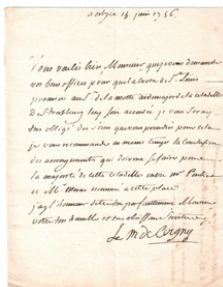 14 juin 1756
Vous voulés bien Monsieur que je vous demande
vos bons offices pour que la croix de St. Louis
au Sr. de la motte aide major de la citadelle
de Strasbourg luy soit accordé je vous seray
obligé des soins que vous prendrés pour cela
je vous recommande en meme temps la
des arrangements qui doivent se faire pour
la majorité de cette citadelle entre Mr.
et Mr. nommé a cette place
j'ay l'honneur d'etre tres parfaitement Monsieur
votre tres humble et tres obeissant serviteur
Le M. de Crequy